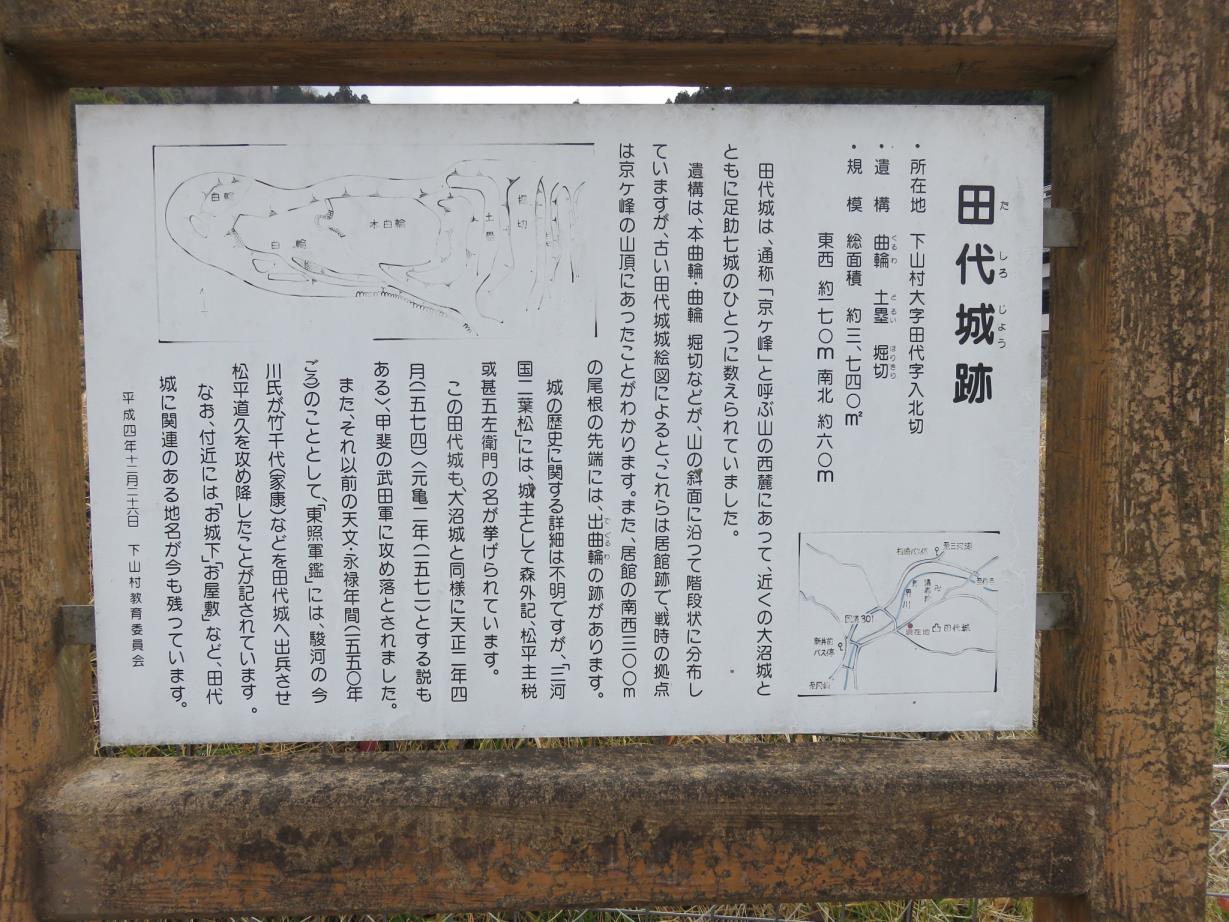 田代城跡
たしろじょう
・所在地 下山村大字田代字入北切
・遺構 曲輪 土塁 堀切
くるわ どるい ほりきり
・規模 総面積 約三、七四〇㎡
東西 約一七〇m 南北 約六〇m
田代城は、通称「京ヶ峰」と呼ぶ山の西麓にあって、近くの大沼城と
ともに足助七城のひとつに数えられていました。
遺構は、本曲輪・曲輪 堀切などが、山の斜面に沿って階段状に分布し
ていますが、古い田代城城絵図によると、これらは居館跡で、戦時の拠点
は京ヶ峰の山頂にあったことがわかります。また、居館の南西三〇〇m
の尾根の先端には、出曲輪の跡があります。
でぐるわ
城の歴史に関する詳細は不明ですが、「三河
国二葉松」には、城主として森外記、松平主税
或甚五左衛門の名が挙げられています。
この田代城も、大沼城と同様に天正二年四
月(一五七四)〈元亀二年(一五七一)とする説も
ある〉、甲斐の武田軍に攻め落とされました。
また、それ以前の天文・永禄年間(一五五〇年
ごろ)のこととして、「東照軍鑑」には、駿河の今
川氏が、竹千代(家康)などを田代城へ出兵させ
松平道久を攻め降したことが記されています。
なお、付近には「お城下」「お屋敷」など、田代
城に関連のある地名が今も残っています。
平成四年十二月二十六日 下山村教育委員会
白輪
本白輪
白輪
土塁
堀切
国道301
現在地
田代城
新井前
バス停